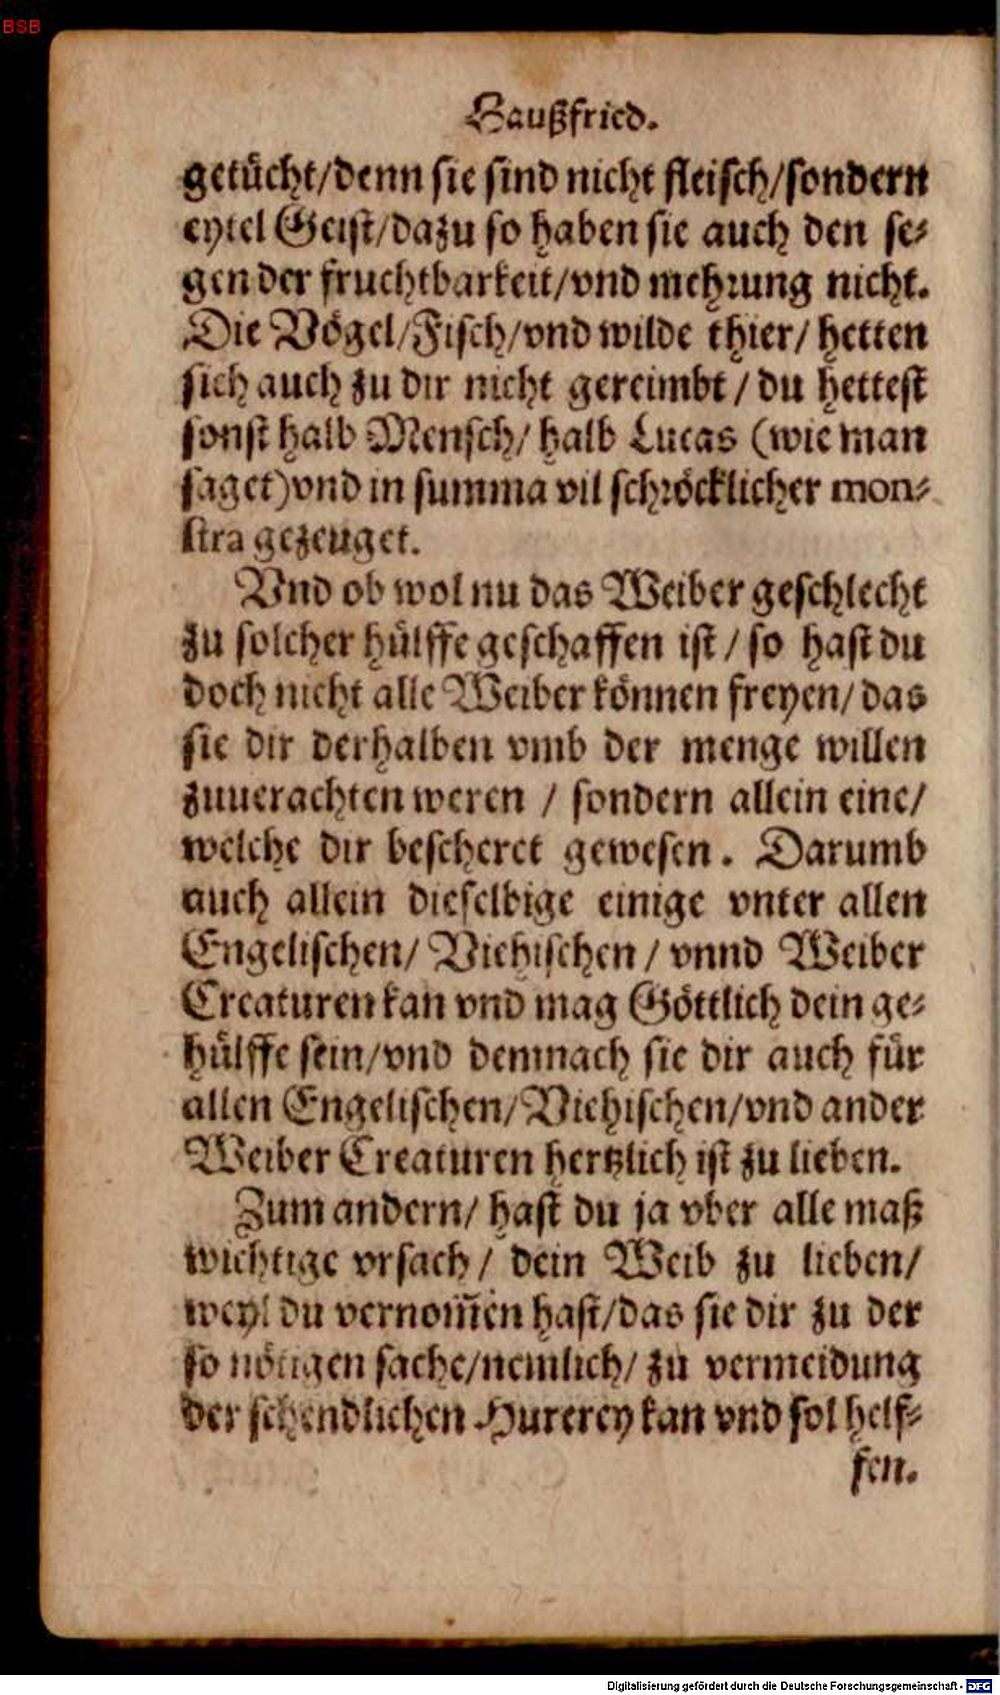 BSB
Haußfried.
getücht/denn sie sind nicht fleisch/sondern
eytel Geist/dazu so haben sie auch den se⸗
gen der fruchtbarkeit/vnd mehrung nicht.
Die Vögel/Fisch/vnd wilde thier/ hetten
sich auch zu dir nicht gereimbt / du hettest
sonst halb Mensch/ halb Lucas (wie man
saget)vnd in summa vil schröcklicher mon⸗
stra gezeuget.
Vnd ob wol nu das Weiber geschlecht
zu solcher hülffe geschaffen ist / so hast du
doch nicht alle Weiber können freyen/ das
sie dir derhalben vmb der menge willen
zuuerachten weren / sondern allein eine/
welche dir bescheret gewesen. Darumb
auch allein dieselbige einige vnter allen
Engelischen/ Viehischen / vnnd Weiber
Creaturen kan vnd mag Göttlich dein ge⸗
hülffe sein/vnd demnach sie dir auch für
allen Engelischen/Viehischen/vnd ander
Weiber Creaturen hertzlich ist zu lieben.
Zum andern/ hast du ja vber alle maß
wichtige vrsach / dein Weib zu lieben/
weyl du vernom̃en hast/das sie dir zu der
so nötigen sache/nemlich/ zu vermeidung
der schendlichen Hurerey kan vnd sol helf⸗
fen.
Digitalisierung gefördert durch die Deutsche Forschungsgemeinschaft - DFG